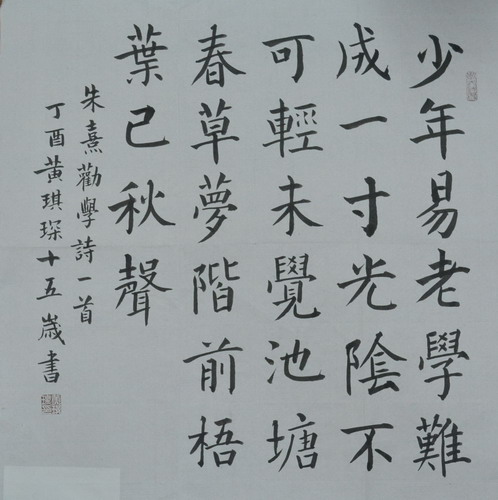 少年易老學難
成一寸光陰不
可輕未覺池塘
春草夢階前梧
葉已秋聲
朱熹勸學詩一首
丁酉黃琪琛十五歲書